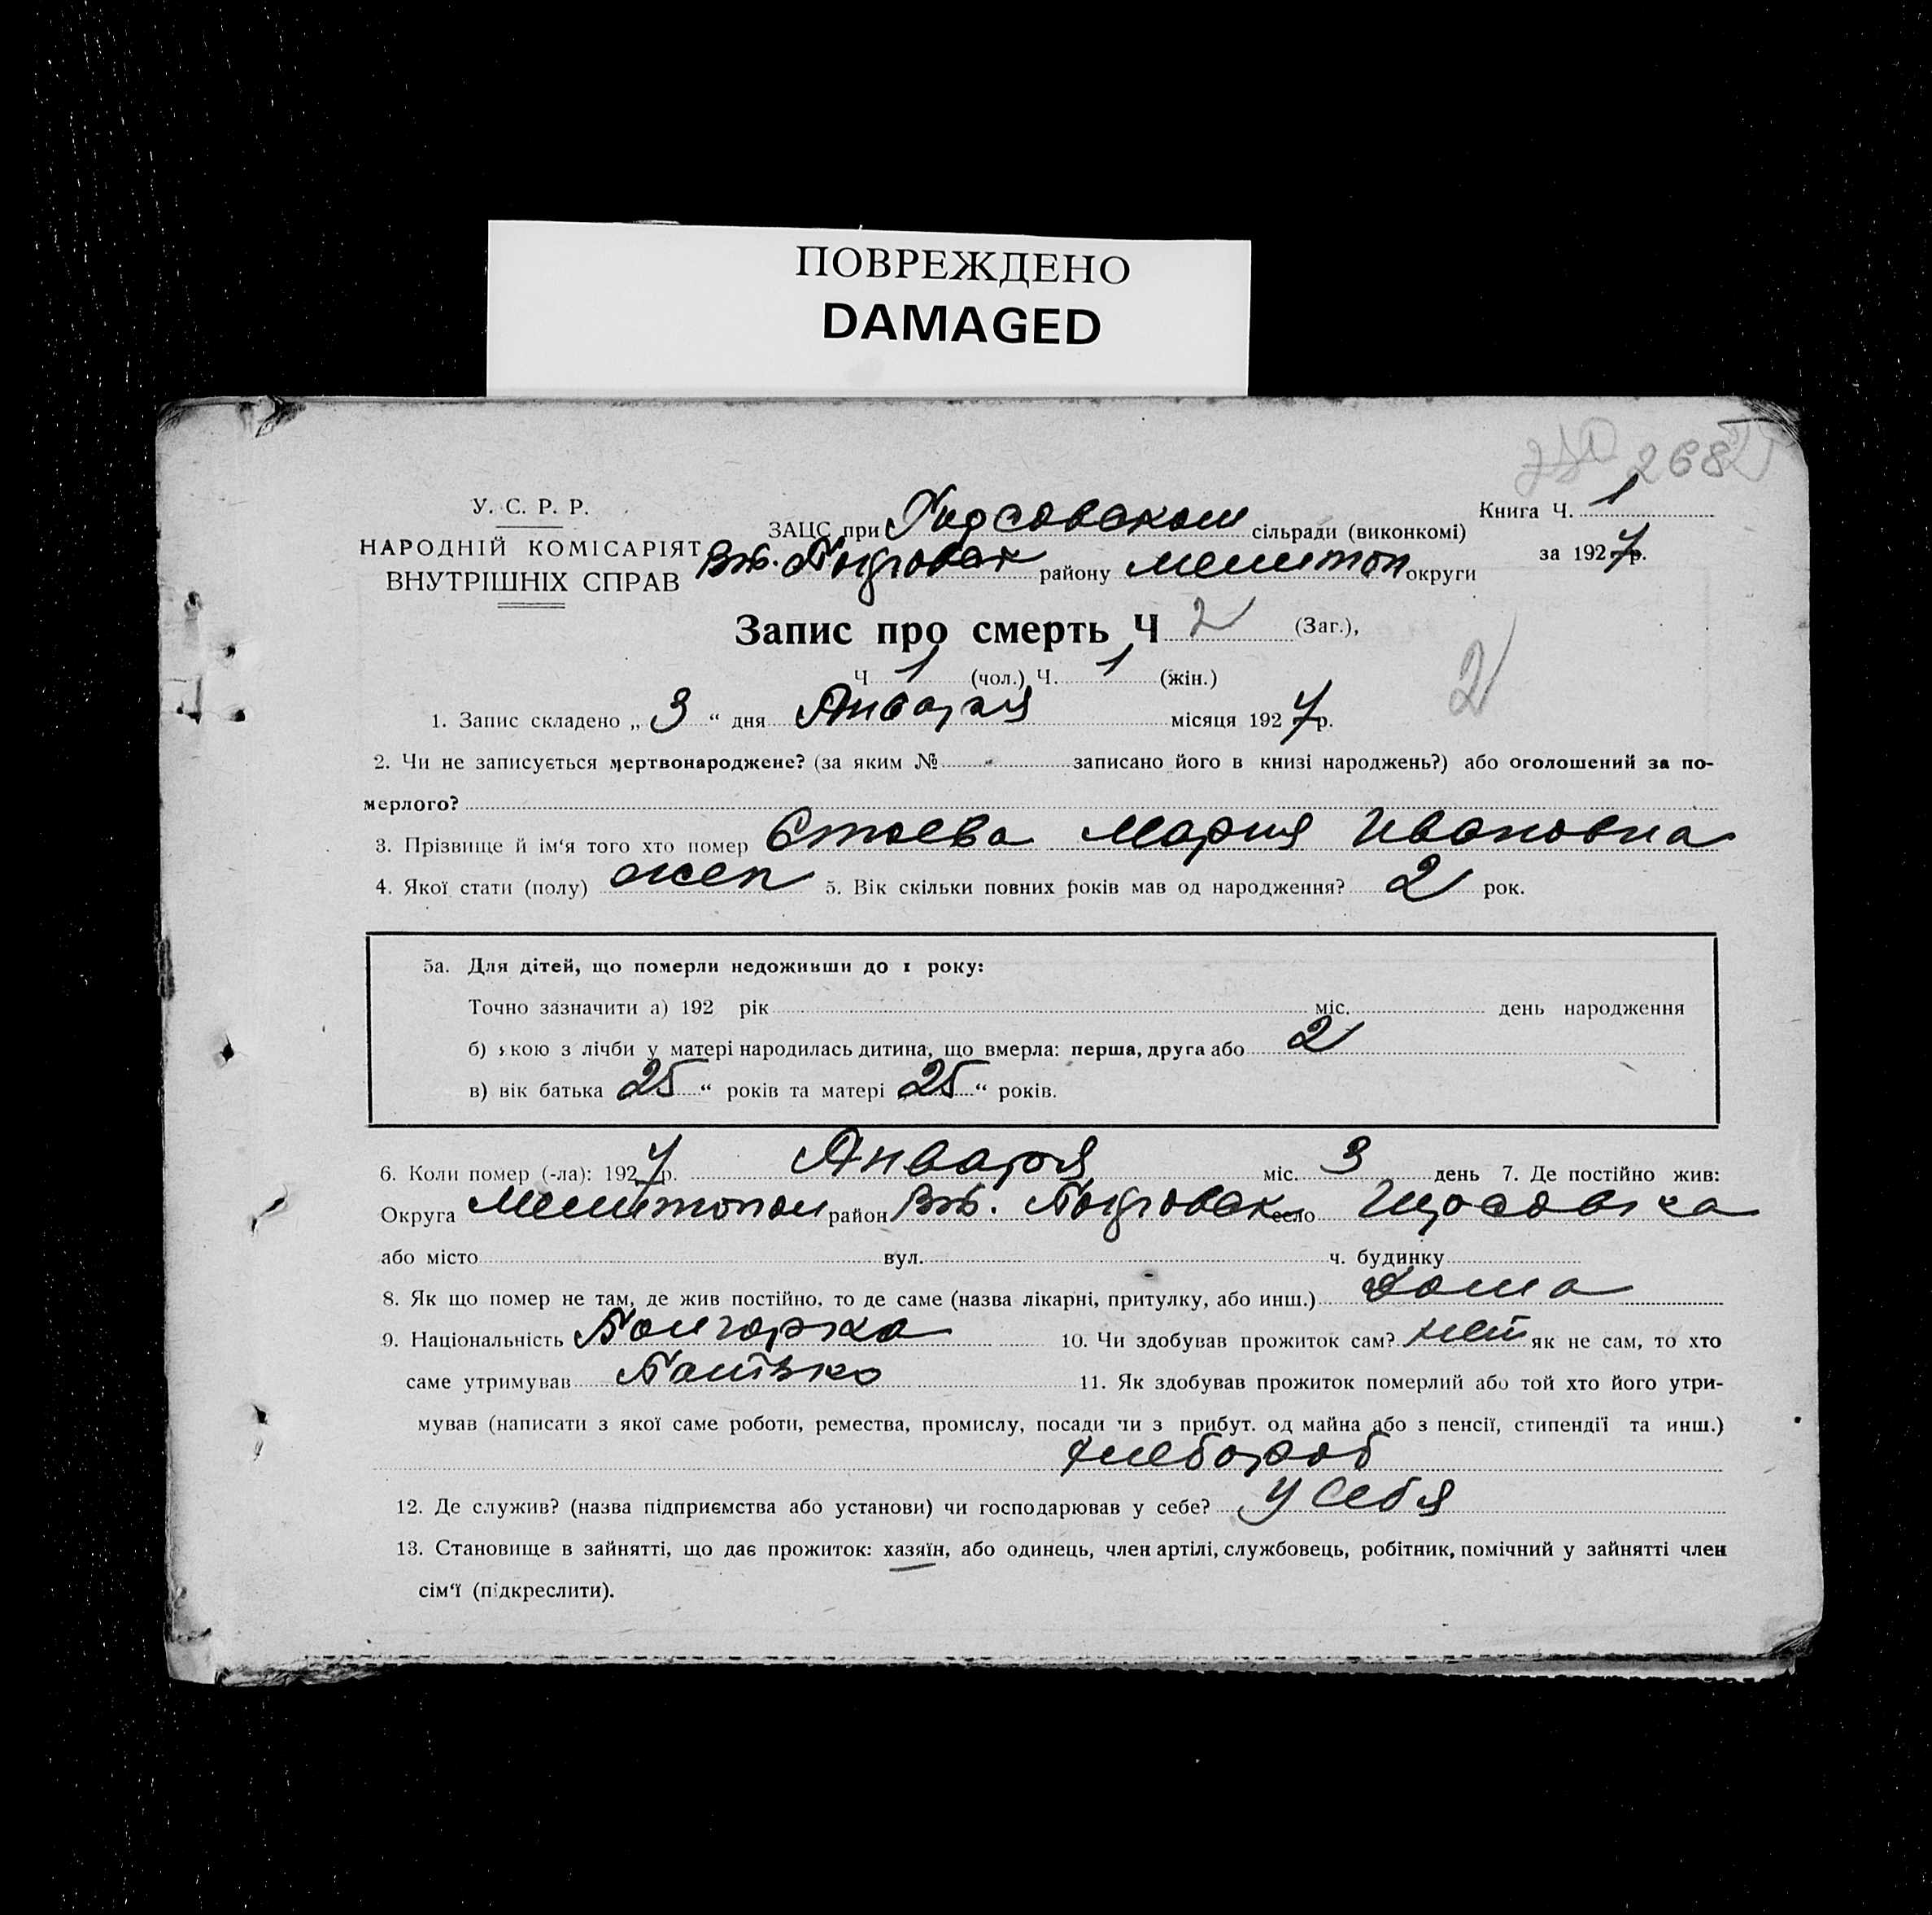 ПОВРЕЖДЕНО
DAMAGED
268
У. С. Р. Р.
НАРОДНІЙ КОМІСАРІЯТ
ВНУТРІШНІХ СПРАВ
ЗАЦС при сільради (виконкомі)
району Мелитоп округи
Книга Ч. 1
за 1927р.
Запис про смерть Ч 2 (Заг.),
2
Ч 1 (чол.) Ч. 1 (жін.)
1. Запис складено „ 3 “ дня Января місяця 1927р.
2. Чи не записується мертвонароджене? (за яким № записано його в книзі народжень?) або оголошений за по-
мерлого?
3. Прізвище й ім‘я того хто помер Стоева Мария Ивановна
4. Якої стати (полу) жен 5. Вік скільки повних років мав од народження? 2 рок.
5а. Для дітей, що померли недоживши до 1 року:
Точно зазначити а) 192 рік міс. день народження
б) якою з лічби у матері народилась дитина, що вмерла: перша, друга або 2
в) вік батька 25 “ років та матері 25 “ років.
6. Коли помер (-ла): 1927р. Января міс. 3 день 7. Де постійно жив:
Округа Мелитопол район село
або місто вул. ч. будинку
8. Як що помер не там, де жив постійно, то де саме (назва лікарні, притулку, або инш.) дома
9. Національність Болгарка 10. Чи здобував прожиток сам? нет як не сам, то хто
саме утримував Батько 11. Як здобував прожиток померлий або той хто його утри-
мував (написати з якої саме роботи, ремества, промислу, посади чи з прибут. од майна або з пенсії, стипендії та инш.)
хлебороб
12. Де служив? (назва підприємства або установи) чи господарював у себе? у себя
13. Становище в зайнятті, що дає прожиток: хазяїн, або одинець, член артілі, службовець, робітник, помічний у зайнятті член
сім‘ї (підкреслити).